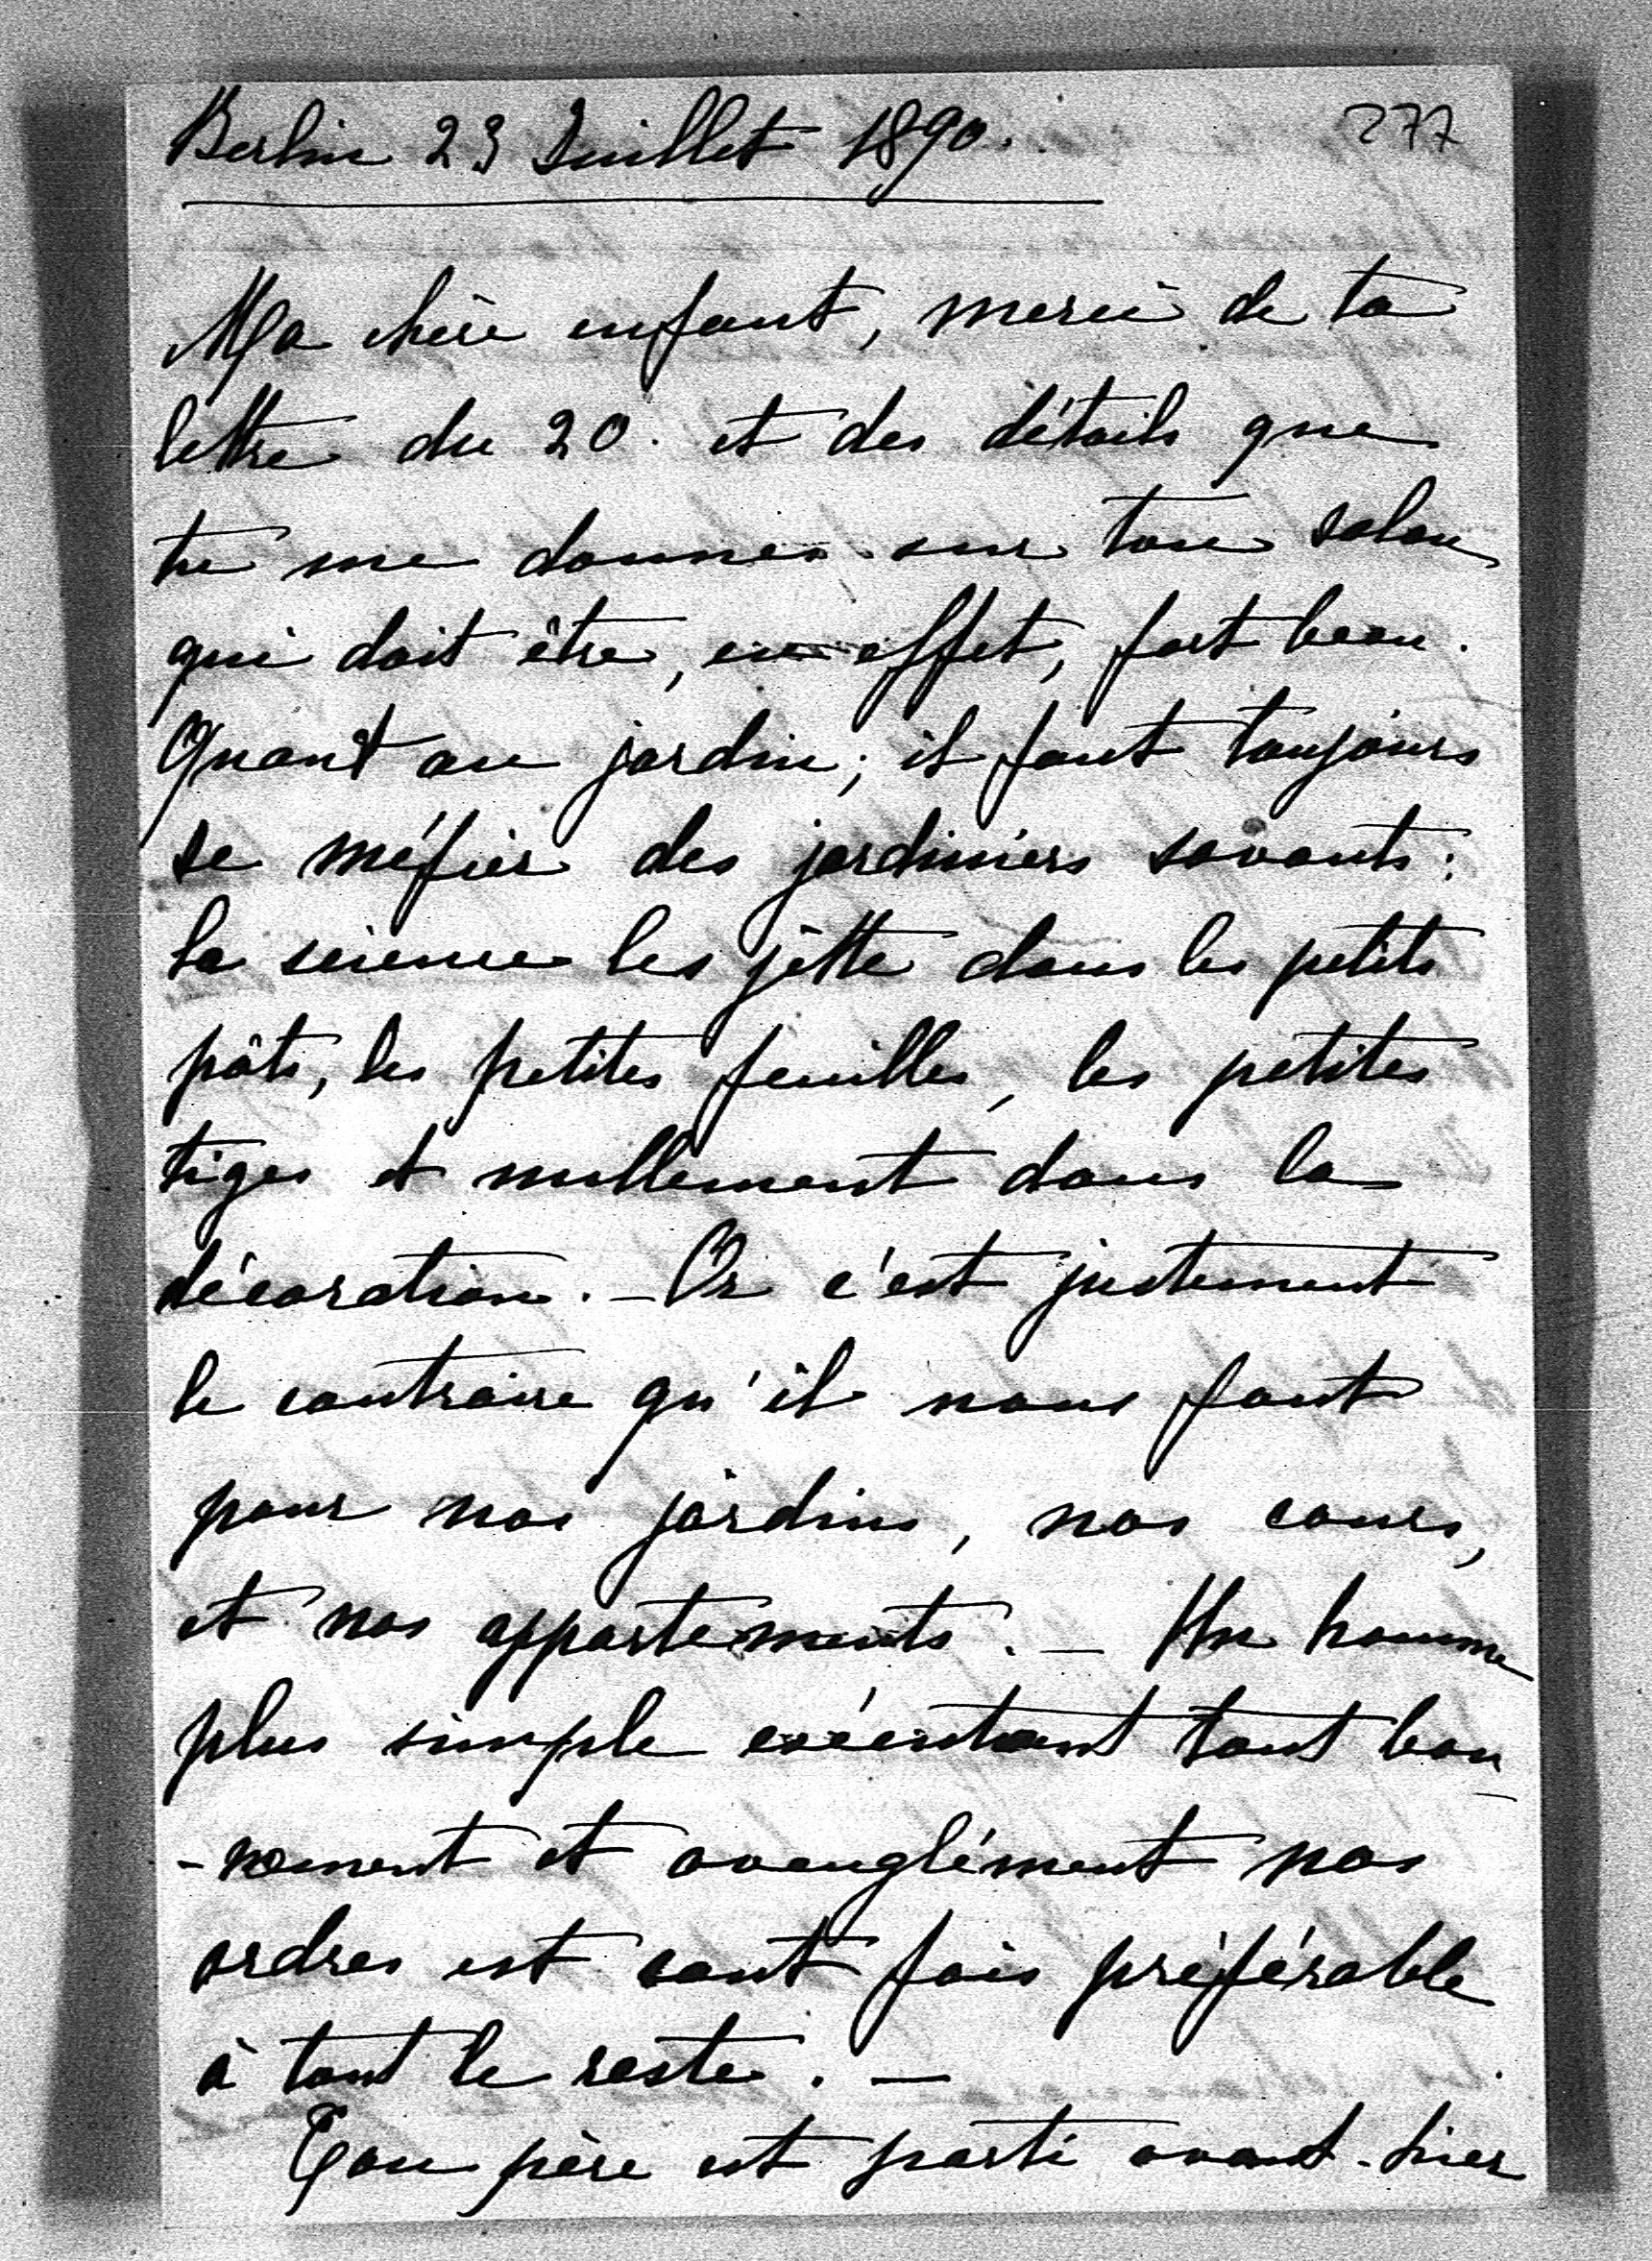 Berlin 23 Juillet 1890.
277
Ma chère enfant, merci de ta
lettre du 20. et des détails que
tu me donnes sur ton salon
qui doit être, en effet, fort beau.
Quant au jardin; il faut toujours
se méfier des jardiniers savants:
la science les jètte dans les petits
pôts, les petites feuilles, les petites
tiges et nullement dans la
décoration. - Or c'est justement
le contraire qu'il nous faut
pour nos jardins, nos cours,
et nos appartements. - Un homme
plus simple exécutant tout bon-
-nement et aveuglément nos
ordres est cent fois préférable
à tout le reste. -
Ton père est parti avant-hier